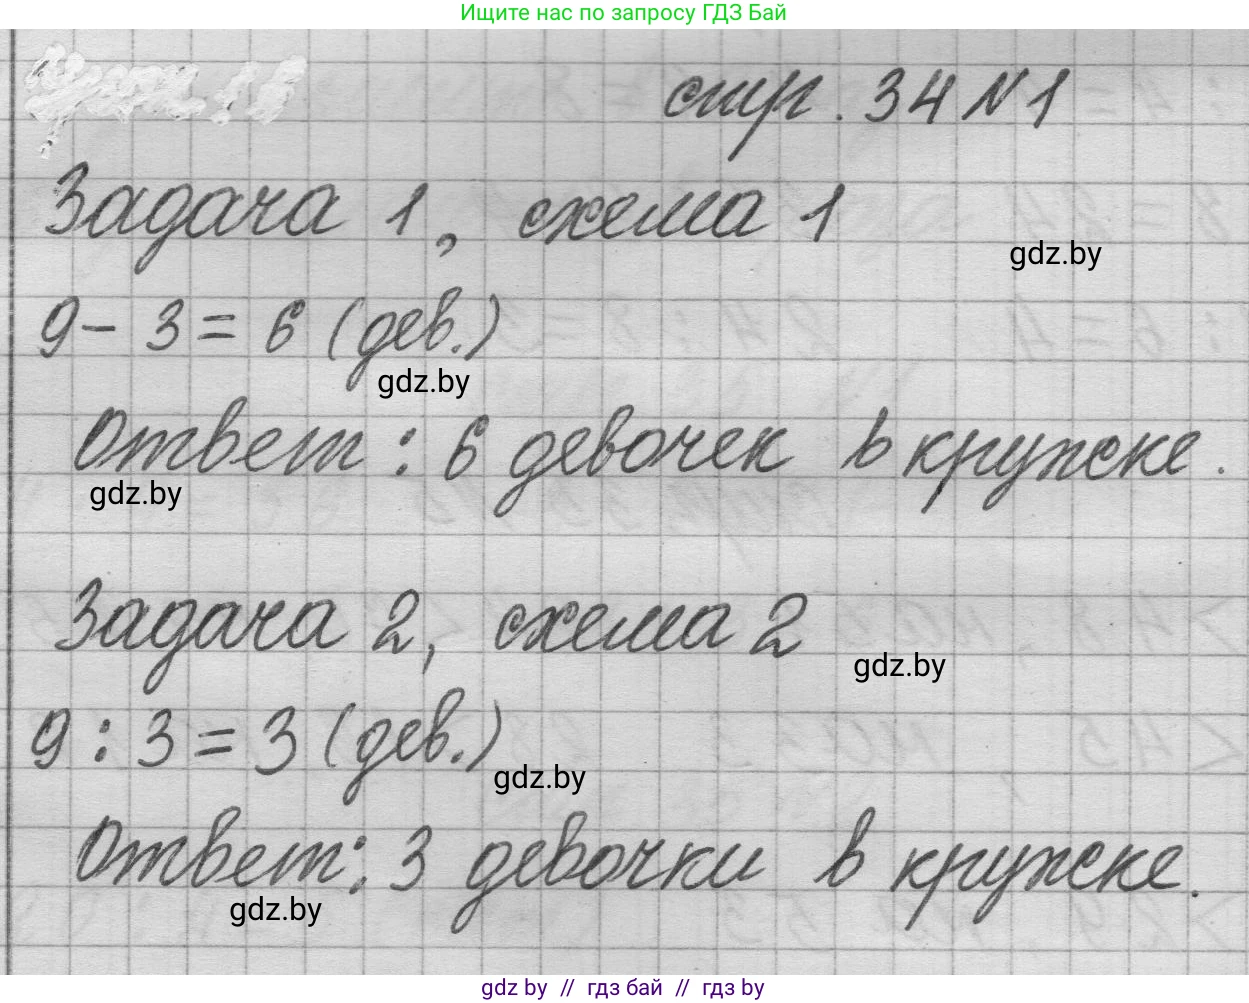 Ищите нас по запросу ГДЗ Бай
стр. 34 N 1
Задача 1, схема 1
gdz.by
9 - 3 = 6 (дев.)
gdz.by
Ответ: 6 девочек в кружке.
gdz.by
Задача 2, схема 2
gdz.by
9 : 3 = 3 (дев.)
gdz.by
Ответ: 3 девочки в кружке.
gdz.by
gdz by // гдз бай // гдз by